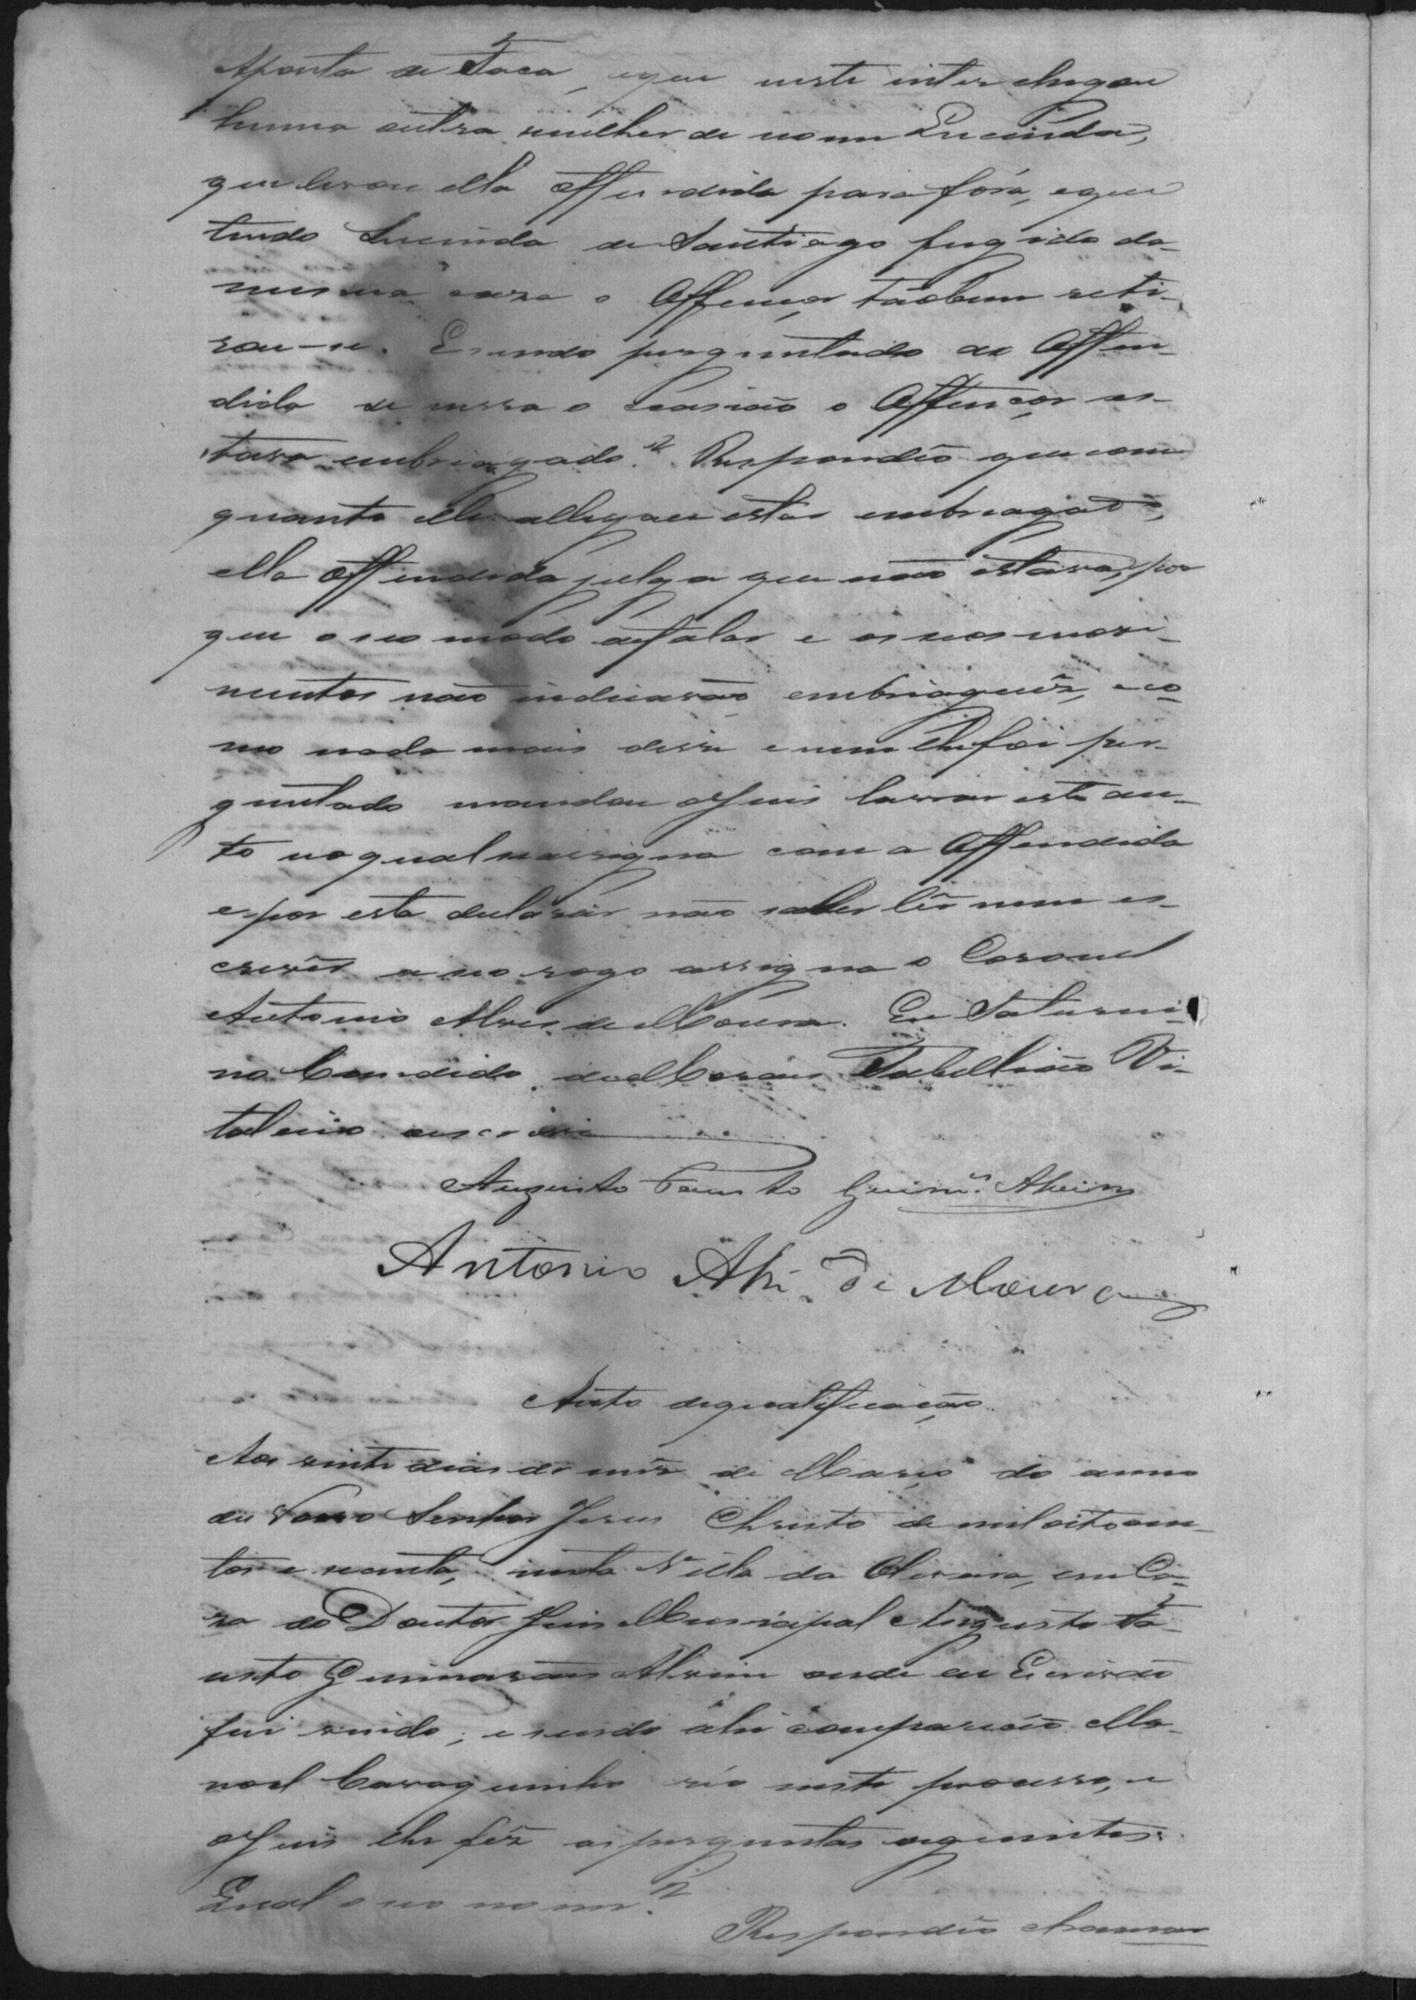 Aponta de Faca, eque neste inter chegou
huma outra mulher de nome Lucinda,
que levou ella Offendida para fóra, eque
tendo Lucinda de Santiago fugido da
mesma caza o Offençor tãobem reti-
rou-se. E sendo perguntado a Offen-
dida se nessa occasião o Offençor es-
tava embriagado? Respondêo que com
quanto elle allegou estar embriagado,
ella Offendida julga que não estava, por
que o seo modo de falar e os seos movi-
mentos não indicavão embriaguêz, e co-
mo nada mais disse e nem lhe foi per-
guntado mandou o Juis lavrar este au-
to no qual se assigna com a Offendida
e por esta declarar não saber lêr nem es-
crevêr a seo rogo assigna o Coronel
Antonio Alves de Moura. Eu Saturni-
no Candido de Moraes Tabellião Vi-
talicio escrevi
Augusto Fausto Guim.es Alvim
Antonio Alz. de Moura
Auto de qualificação
Aos vinte dias do mêz de Março do anno
de Nosso Senhor Jesus Christo de mil oito cen-
tos e secenta, nesta Villa da Oliveira, em Ca-
za do Doutor Juis Municipal Augusto Fa-
usto Guimarães Alvim onde eu Escrivão
fui vindo; e sendo ahi comparecêo Ma-
noel Cavaquinho réo neste processo, e
o Juis lhe fêz as perguntas seguintes:
Qual o seo nome?
Respondêo chamar